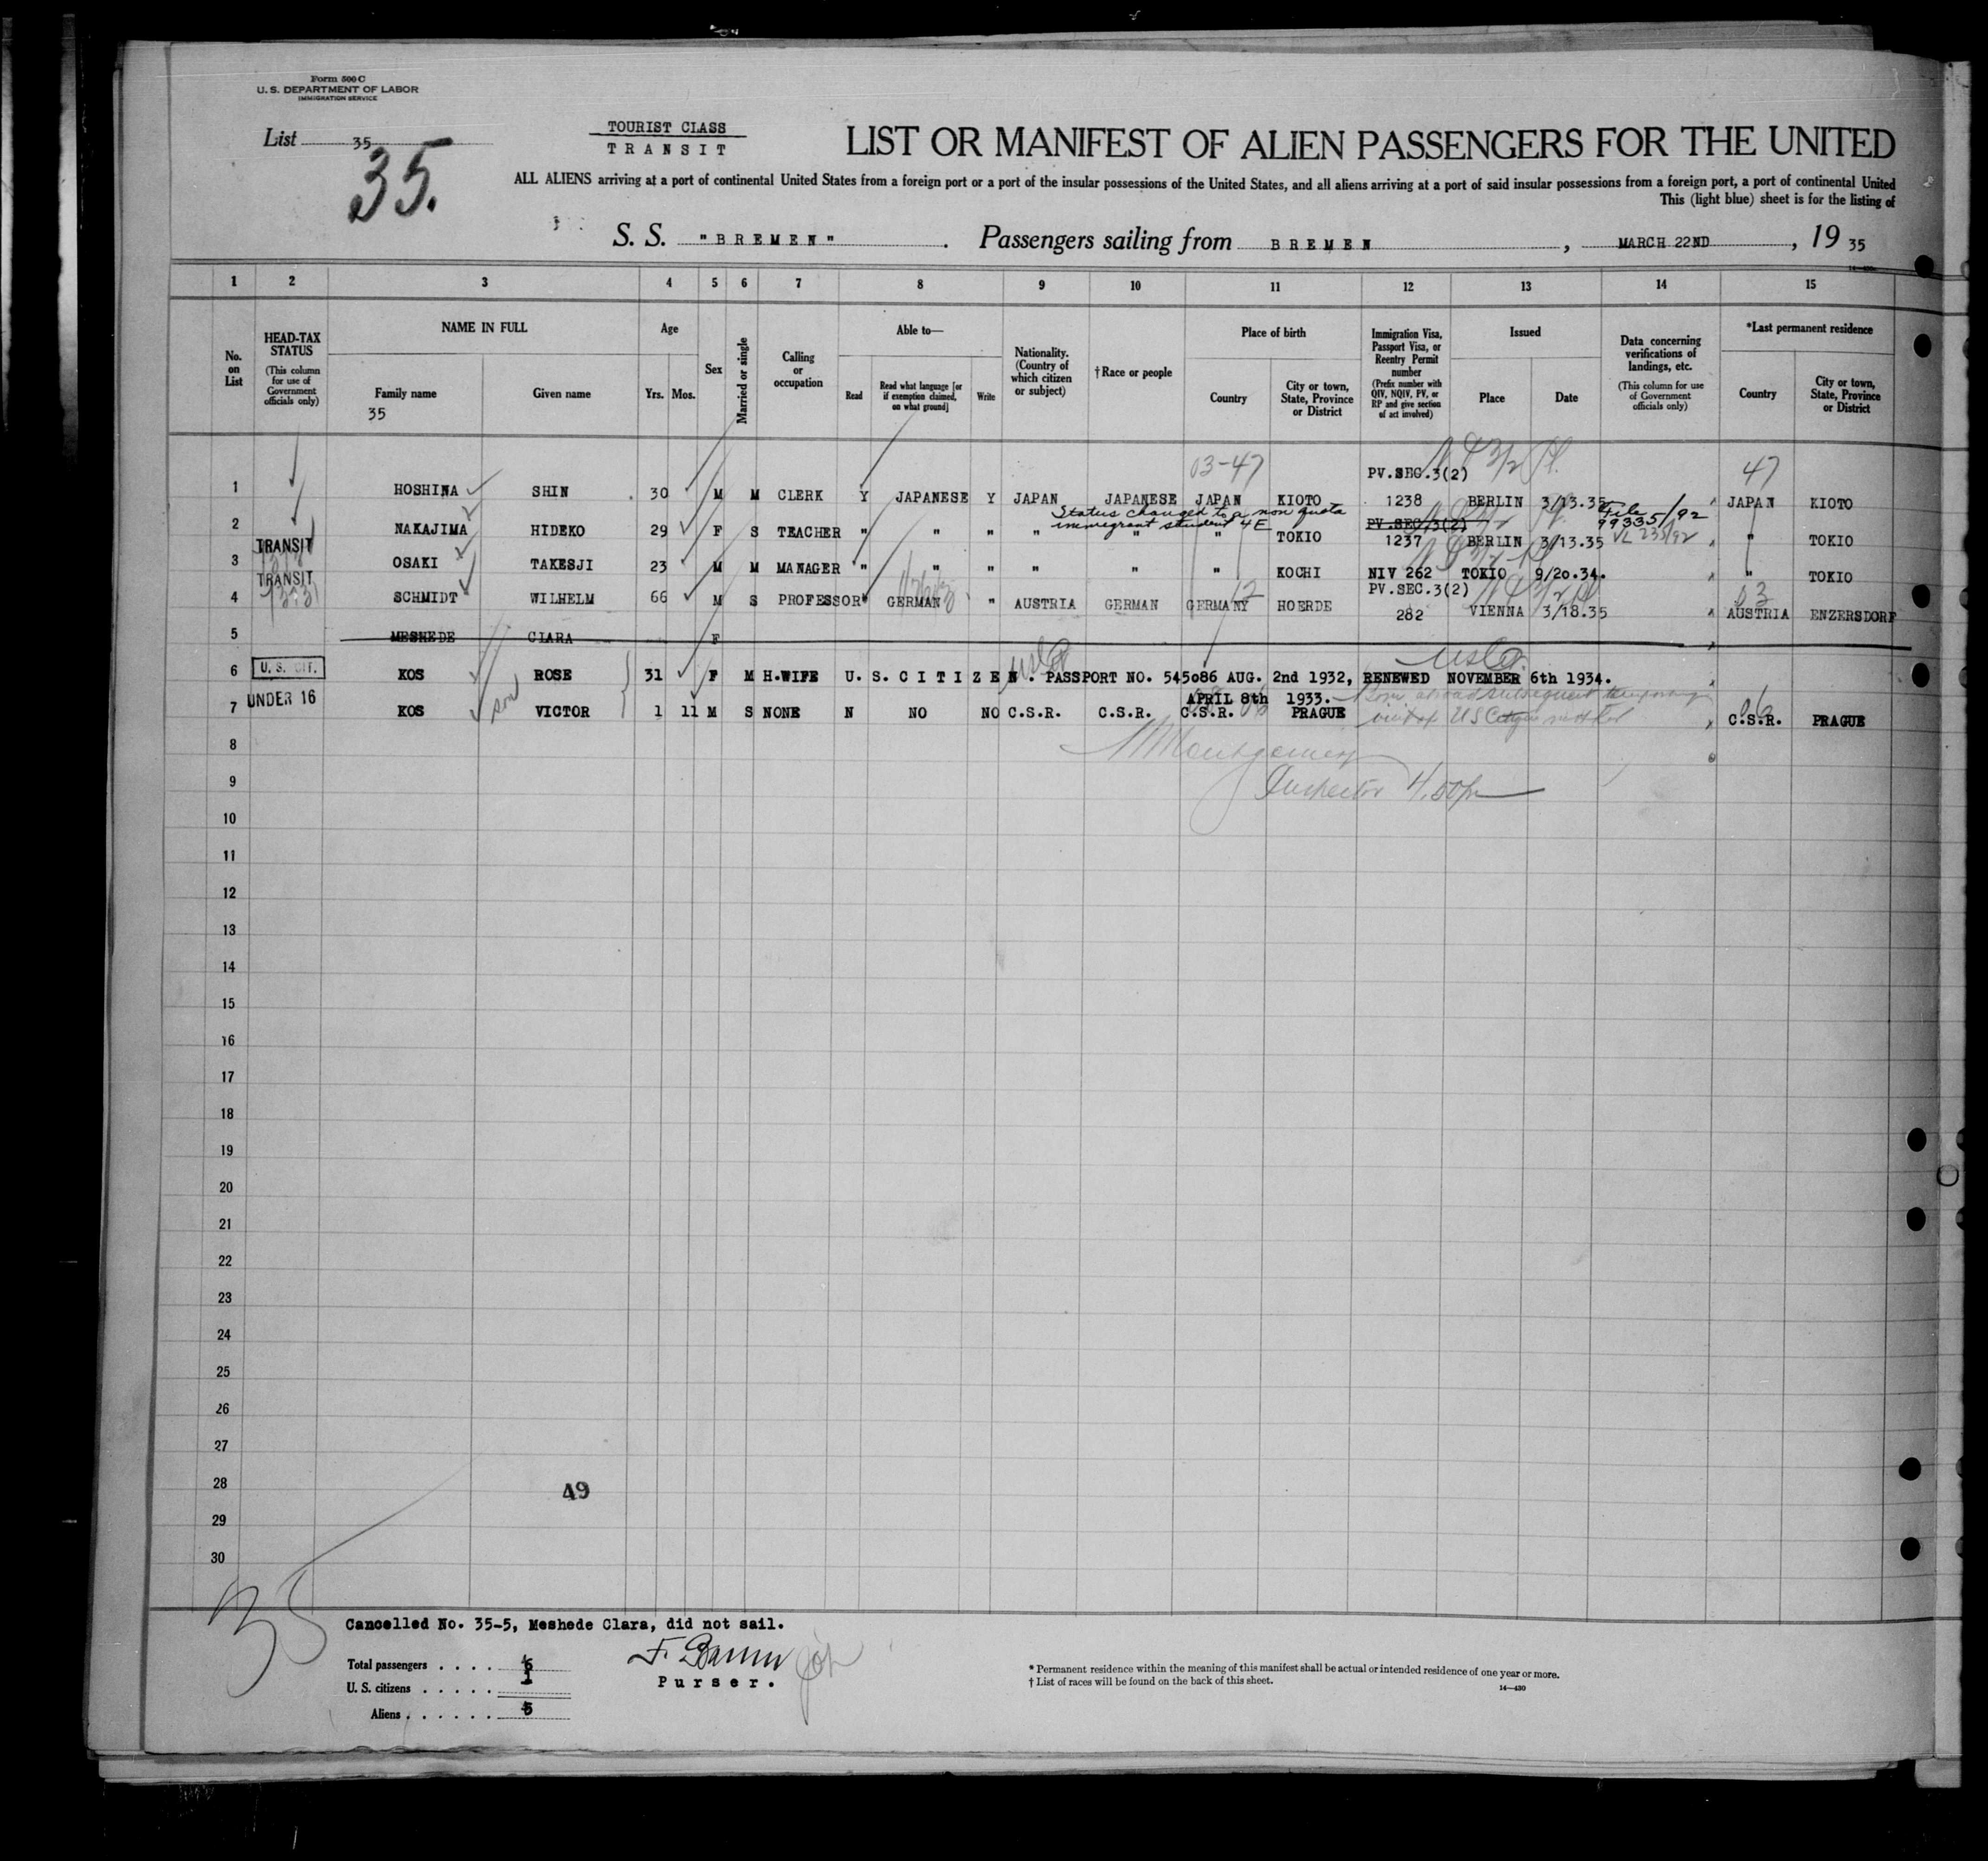 Form 500 C
U. S. DEPARTMENT OF LABOR
IMMIGRATION SERVICE
List 35
35.
TOURIST CLASS
TRANSIT
LIST OR MANIFEST OF ALIEN PASSENGERS FOR THE UNITED
ALL ALIENS arriving at a port of continental United States from a foreign port or a port of the insular possessions of the United States, and all aliens arriving at a port of said insular possessions from a foreign port, a port of continental United
This (light blue) sheet is for the listing of
S. S. "BREMEN" . Passengers sailing from BREMEN , MARCH 22ND , 19 35
1 2 3 4 5 6 7 8 9 10 11 12 13 14 15
No. on List
HEAD-TAX STATUS
(This column for use of Government officials only)
NAME IN FULL
Family name
35
Given name
Age
Yrs. Mos.
Sex
Married or single
Calling or occupation
Able to—
Read
Read what language [or if exemption claimed, on what ground]
Write
Nationality. (Country of which citizen or subject)
†Race or people
Place of birth
Country
City or town, State, Province or District
Immigration Visa, Passport Visa, or Reentry Permit number
(Prefix number with QIV, NQIV, PV, or RP and give section of act involved)
Issued
Place
Date
Data concerning verifications of landings, etc.
(This column for use of Government officials only)
*Last permanent residence
Country
City or town, State, Province or District
03-47 PV.SEC.3(2) 47
1 HOSHINA SHIN 30 M M CLERK Y JAPANESE Y JAPAN JAPANESE JAPAN KIOTO 1238 BERLIN 3/13.35 JAPAN KIOTO
Status changed to a non quota immigrant student 4E
PV.SEC.3(2) File 99335/92
2 NAKAJIMA HIDEKO 29 F S TEACHER " " " " " " TOKIO 1237 BERLIN 3/13.35 VL 235/92 " TOKIO
TRANSIT
3 OSAKI TAKESJI 23 M M MANAGER " " " " " " KOCHI NIV 262 TOKIO 9/20.34. " TOKIO
TRANSIT PV.SEC.3(2) 12 03
4 SCHMIDT WILHELM 66 M S PROFESSOR " GERMAN " AUSTRIA GERMAN GERMANY HOERDE 282 VIENNA 3/18.35 AUSTRIA ENZERSDORF
5 MESHEDE CLARA F
6 U.S. CIT. KOS ROSE 31 F M H.WIFE U.S.CITIZEN. PASSPORT NO. 545086 AUG. 2nd 1932, RENEWED NOVEMBER 6th 1934.
UNDER 16 son APRIL 8th 1933. Born abroad subsequent temporary
7 KOS VICTOR 1 11 M S NONE N NO NO C.S.R. C.S.R. C.S.R. PRAGUE visit of US Citizen mother 06 C.S.R. PRAGUE
8 Montgomery
9 Inspector 4.50pm
10
11
12
13
14
15
16
17
18
19
20
21
22
23
24
25
26
27
28 49
29
30
35
Cancelled No. 35-5, Meshede Clara, did not sail.
Total passengers . . . . 6
U. S. citizens . . . . . 1
Aliens . . . . . . 5
Purser.
* Permanent residence within the meaning of this manifest shall be actual or intended residence of one year or more.
† List of races will be found on the back of this sheet.
14—430